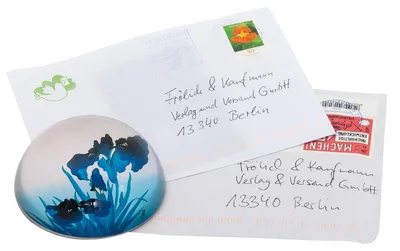 Frölich & Kaufmann
Verlag und Versand GmbH
13340 Berlin
Frölich & Kaufmann
Verlag & Versand GmbH
13340 Berlin